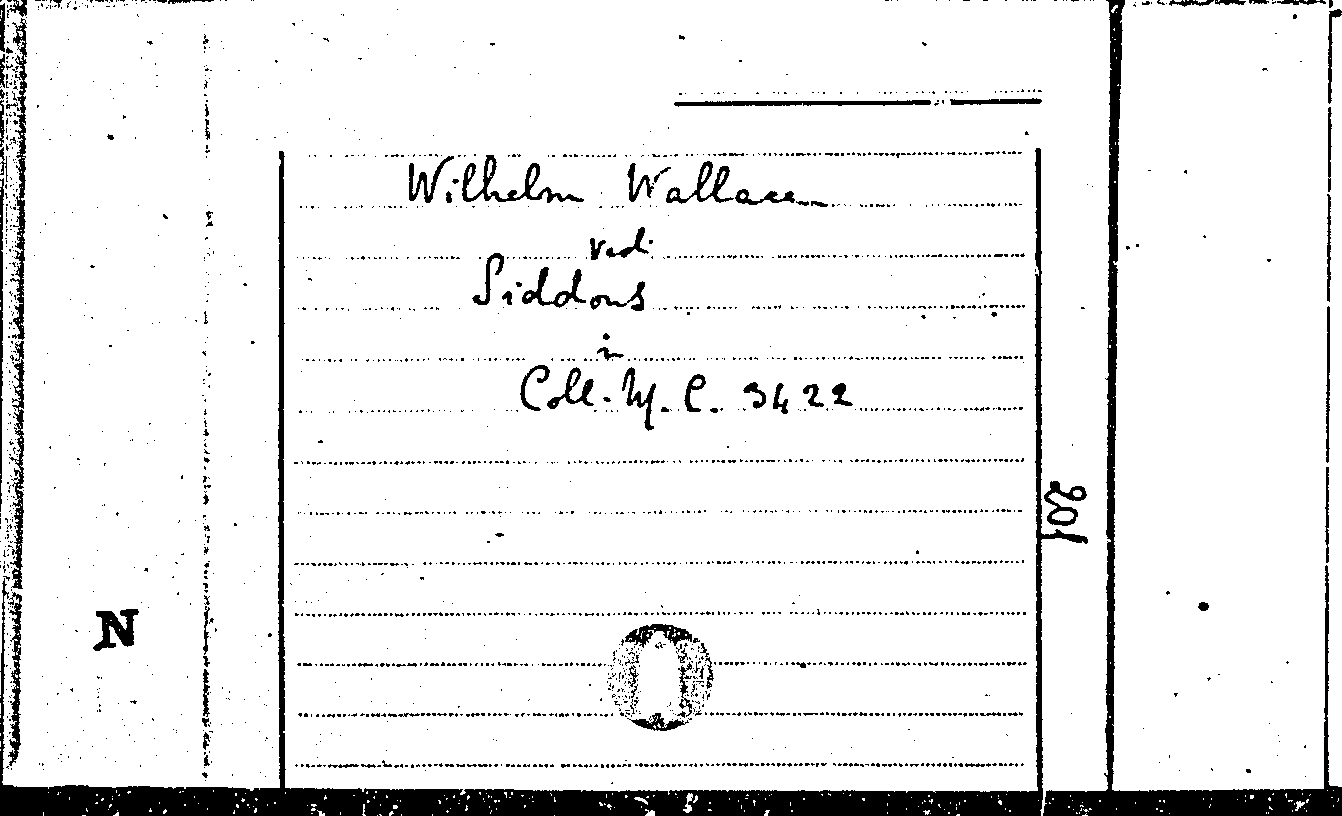 Wilhelm Wallace
vedi
Siddons
in
Coll. M. C. 3422
201
N